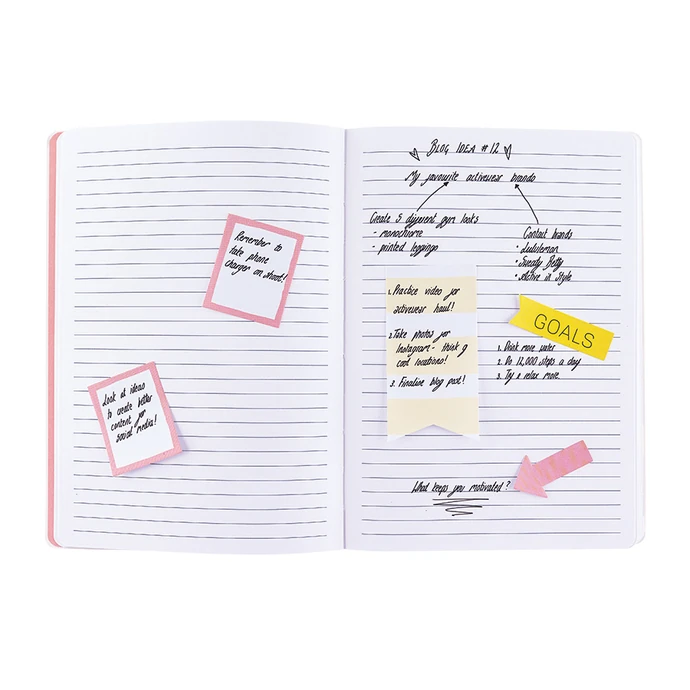 Remember to
take phone
charger on shoot!
Look at ideas
to create better
content for
social media!
BLOG IDEA #12
My favourite activewear brands
Create 5 different gym looks
- monochrome
- printed leggings
Contact brands
• Lululemon
• Sweaty Betty
• Active in Style
1. Practice video for
activewear haul!
2. Take photos for
Instagram - think of
cool locations!
3. Finalise blog post!
GOALS
1. Drink more water
2. Do 12,000 steps a day
3. Try & relax more
What keeps you motivated?